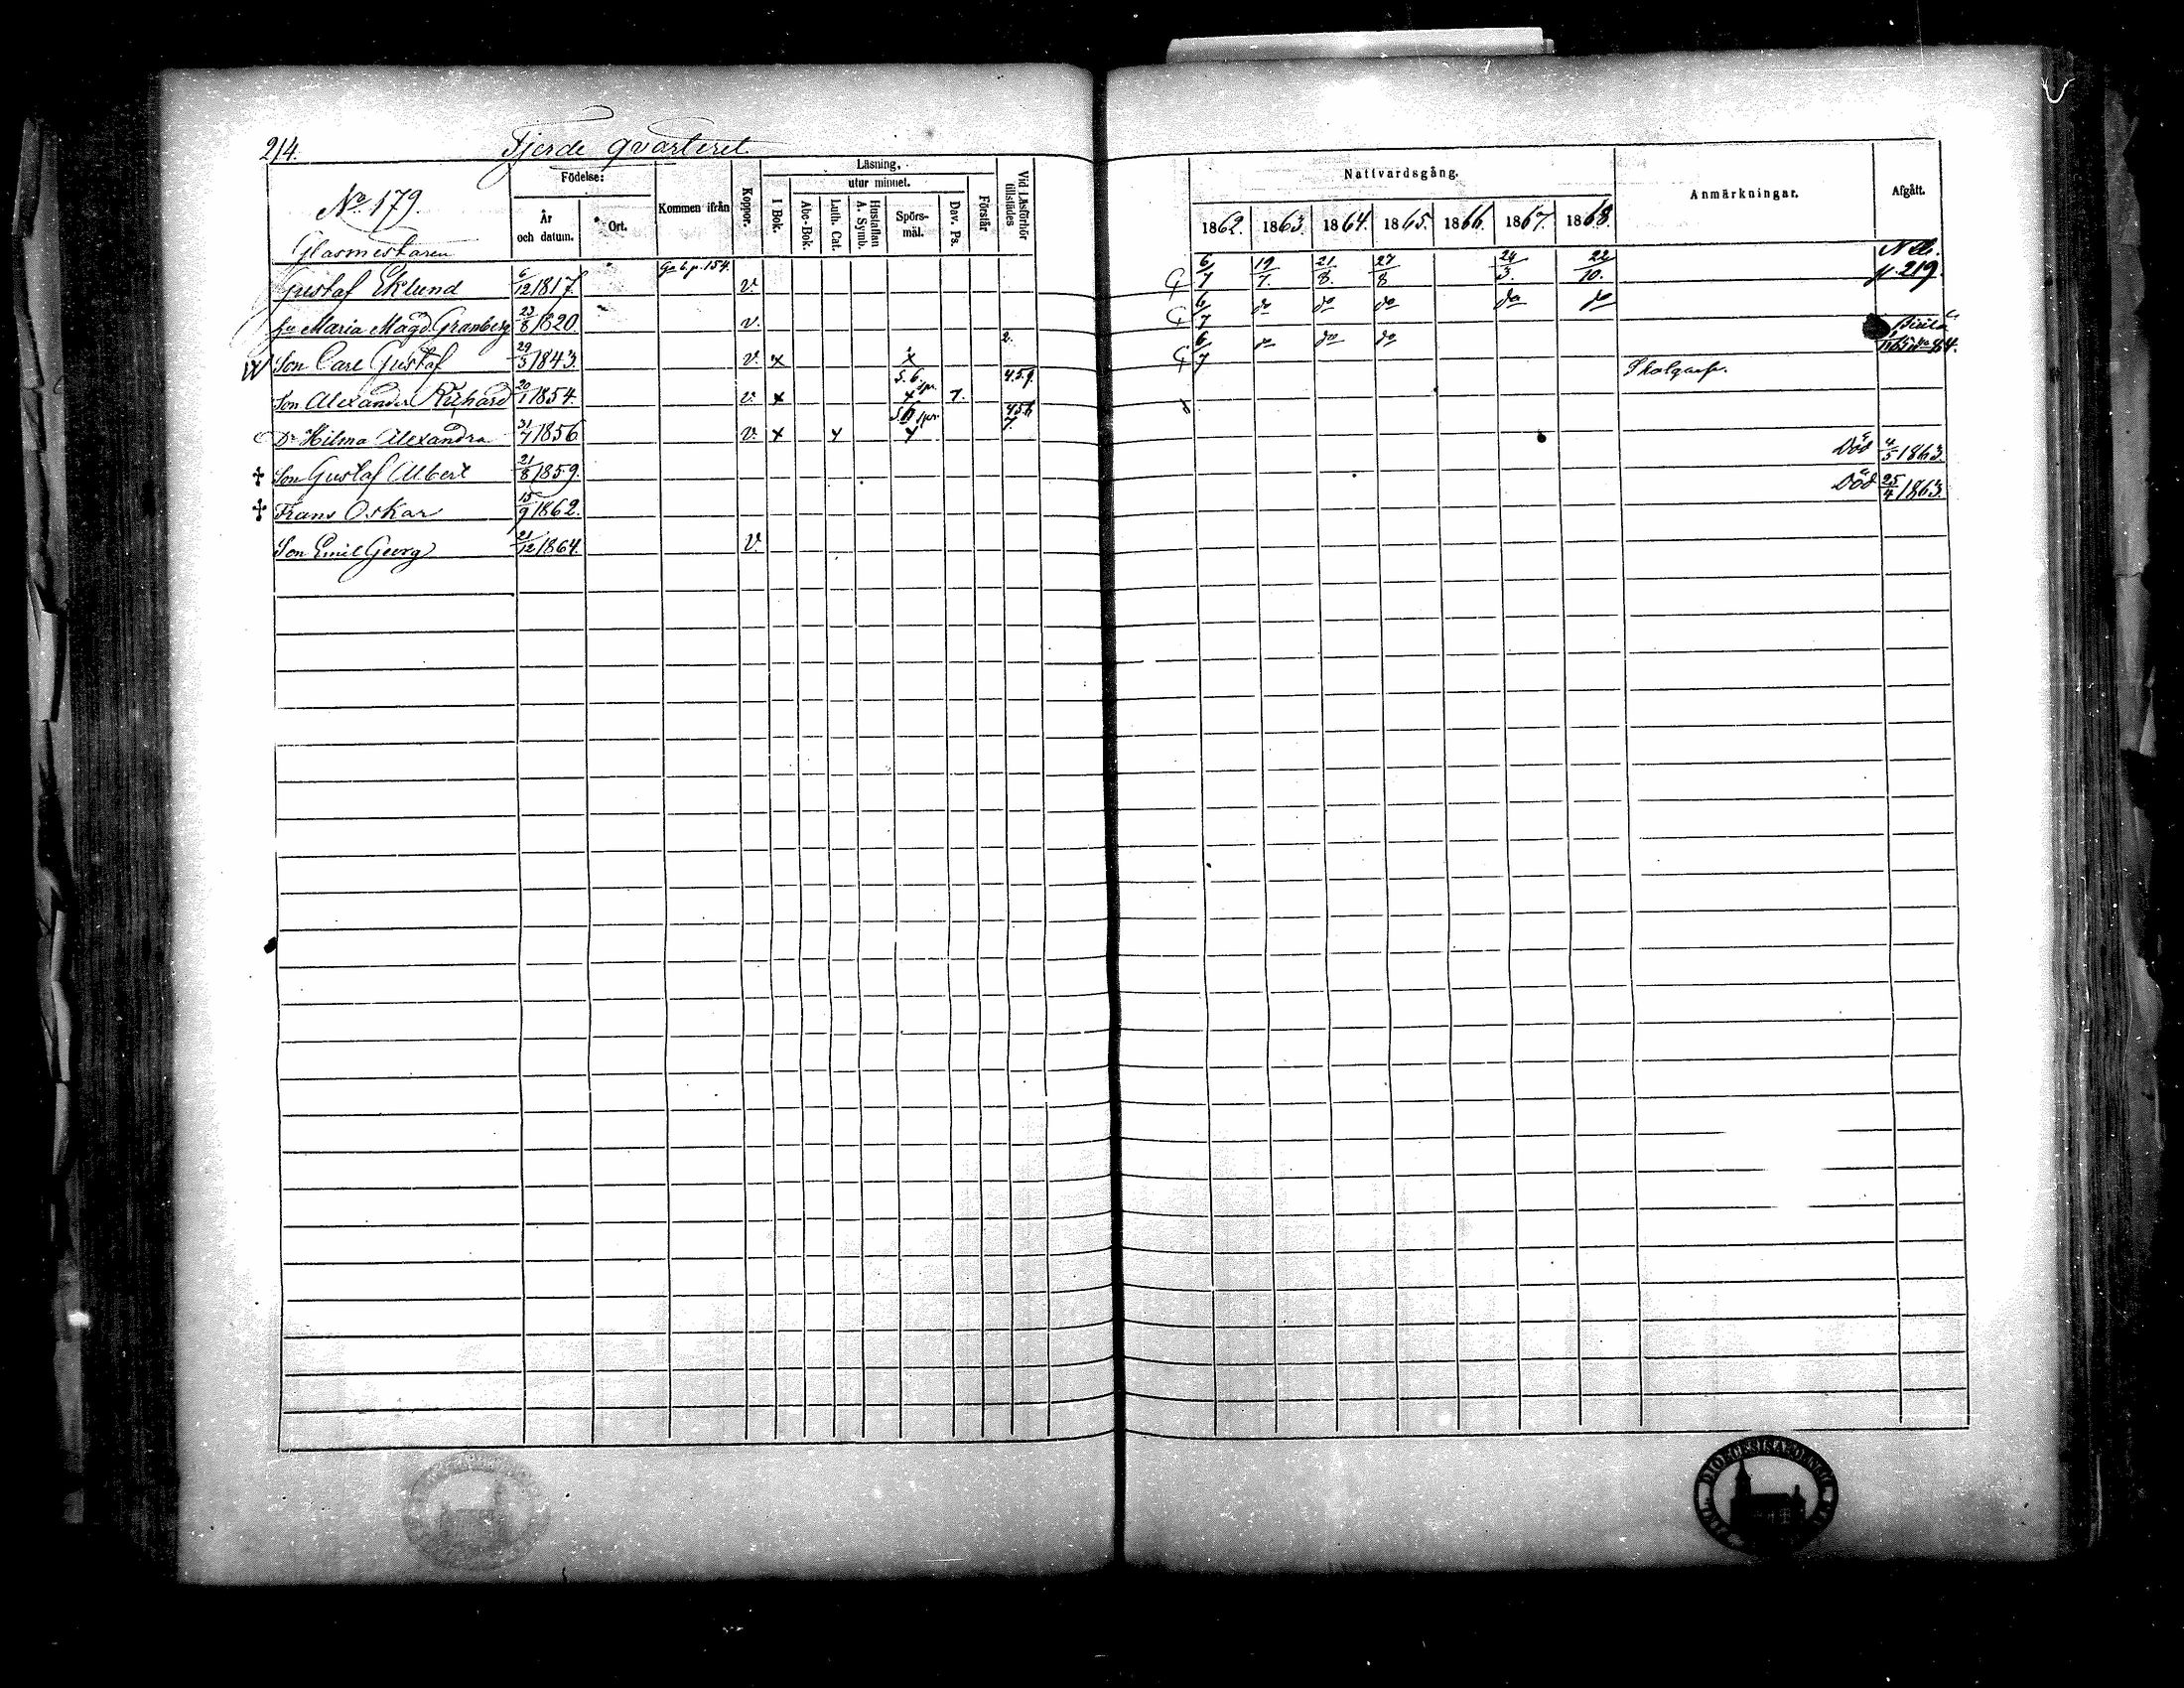 214.
Fjerde qvarteret
No 179.
Glasmestaren
Födelse:
År och datum.
Ort.
Kommen ifrån
Koppor.
Läsning,
utur minnet.
I Bok.
Abc-Bok.
Luth. Cat.
Hustaflan A. Symb.
Spörs-mål.
Dav. Ps.
Förstår
Vid Läsförhör tillstädes
Nattvardsgång.
1862. 1863. 1864. 1865. 1866. 1867. 1868.
Anmärkningar.
Afgått.
Gustaf Eklund 6/12 1817. p. 154. v. 6/7 19/7. 21/8. 27/8 24/3. 22/10. p. 219.
Maria Magd. Granberg 23/8 1820. v. 6/7 do do do do do
Son Carl Gustaf 29/3 1843. v. x x 2. 6/7 do do do
Son Alexander Richard 20/1 1854. v. x 5. 6. spr. x 7. 4.5.9.
Dr Hilma Alexandra 31/7 1856 v. x x x 7.
+ Son Gustaf Albert 21/8 1859. Död 4/5 1863.
+ Frans Oskar 15/9 1862. Död 25/4 1863.
Son Emil Georg 21/12 1864. v.